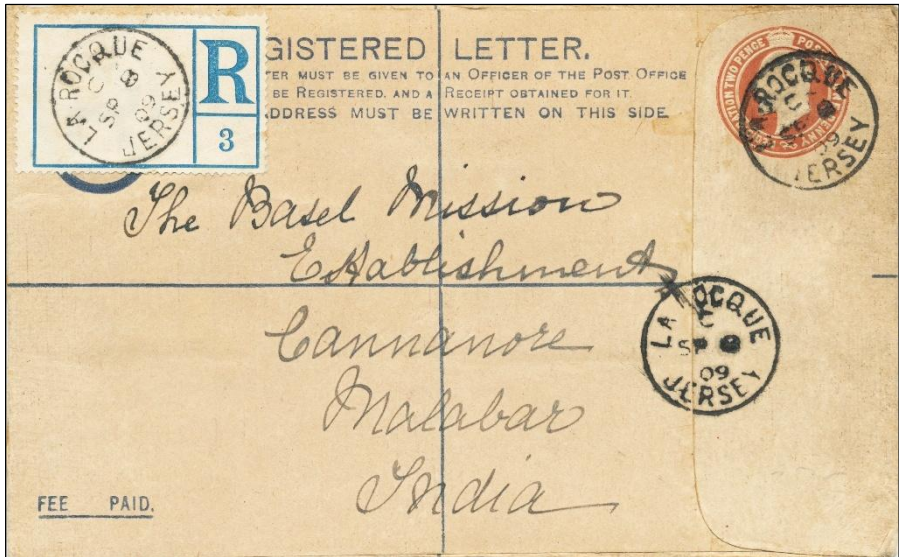 LA ROCQUE
C
SP 8
09
JERSEY
R
3
GISTERED LETTER.
TER MUST BE GIVEN TO AN OFFICER OF THE POST OFFICE
BE REGISTERED, AND A RECEIPT OBTAINED FOR IT.
DDRESS MUST BE WRITTEN ON THIS SIDE
TWO PENCE
LA ROCQUE
C
SP 8
09
JERSEY
The Basel Mission
Establishment
Cannanore
Malabar
India
LA ROCQUE
C
SP 8
09
JERSEY
FEE PAID.